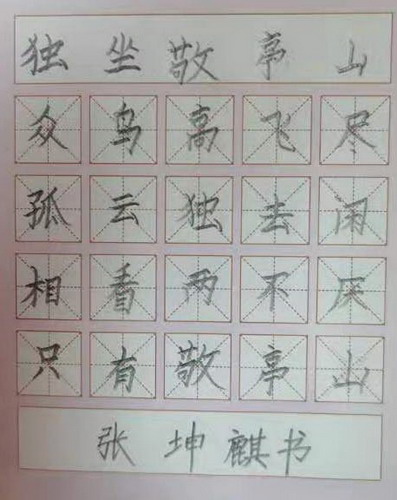 独坐敬亭山
众鸟高飞尽
孤云独去闲
相看两不厌
只有敬亭山
张坤麒书